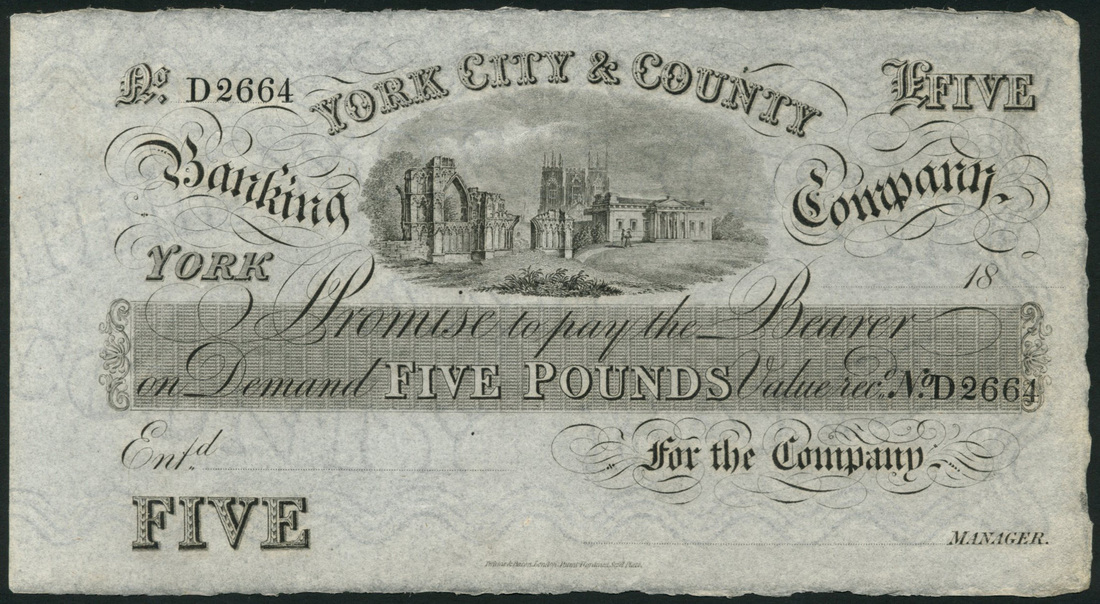 No. D2664 YORK CITY & COUNTY £FIVE
Banking Company.
YORK 18
I Promise to pay the Bearer
on Demand FIVE POUNDS Value recd. No. D2664
Entd. For the Company.
FIVE
MANAGER.
London. Patent Hardened Steel Plate.